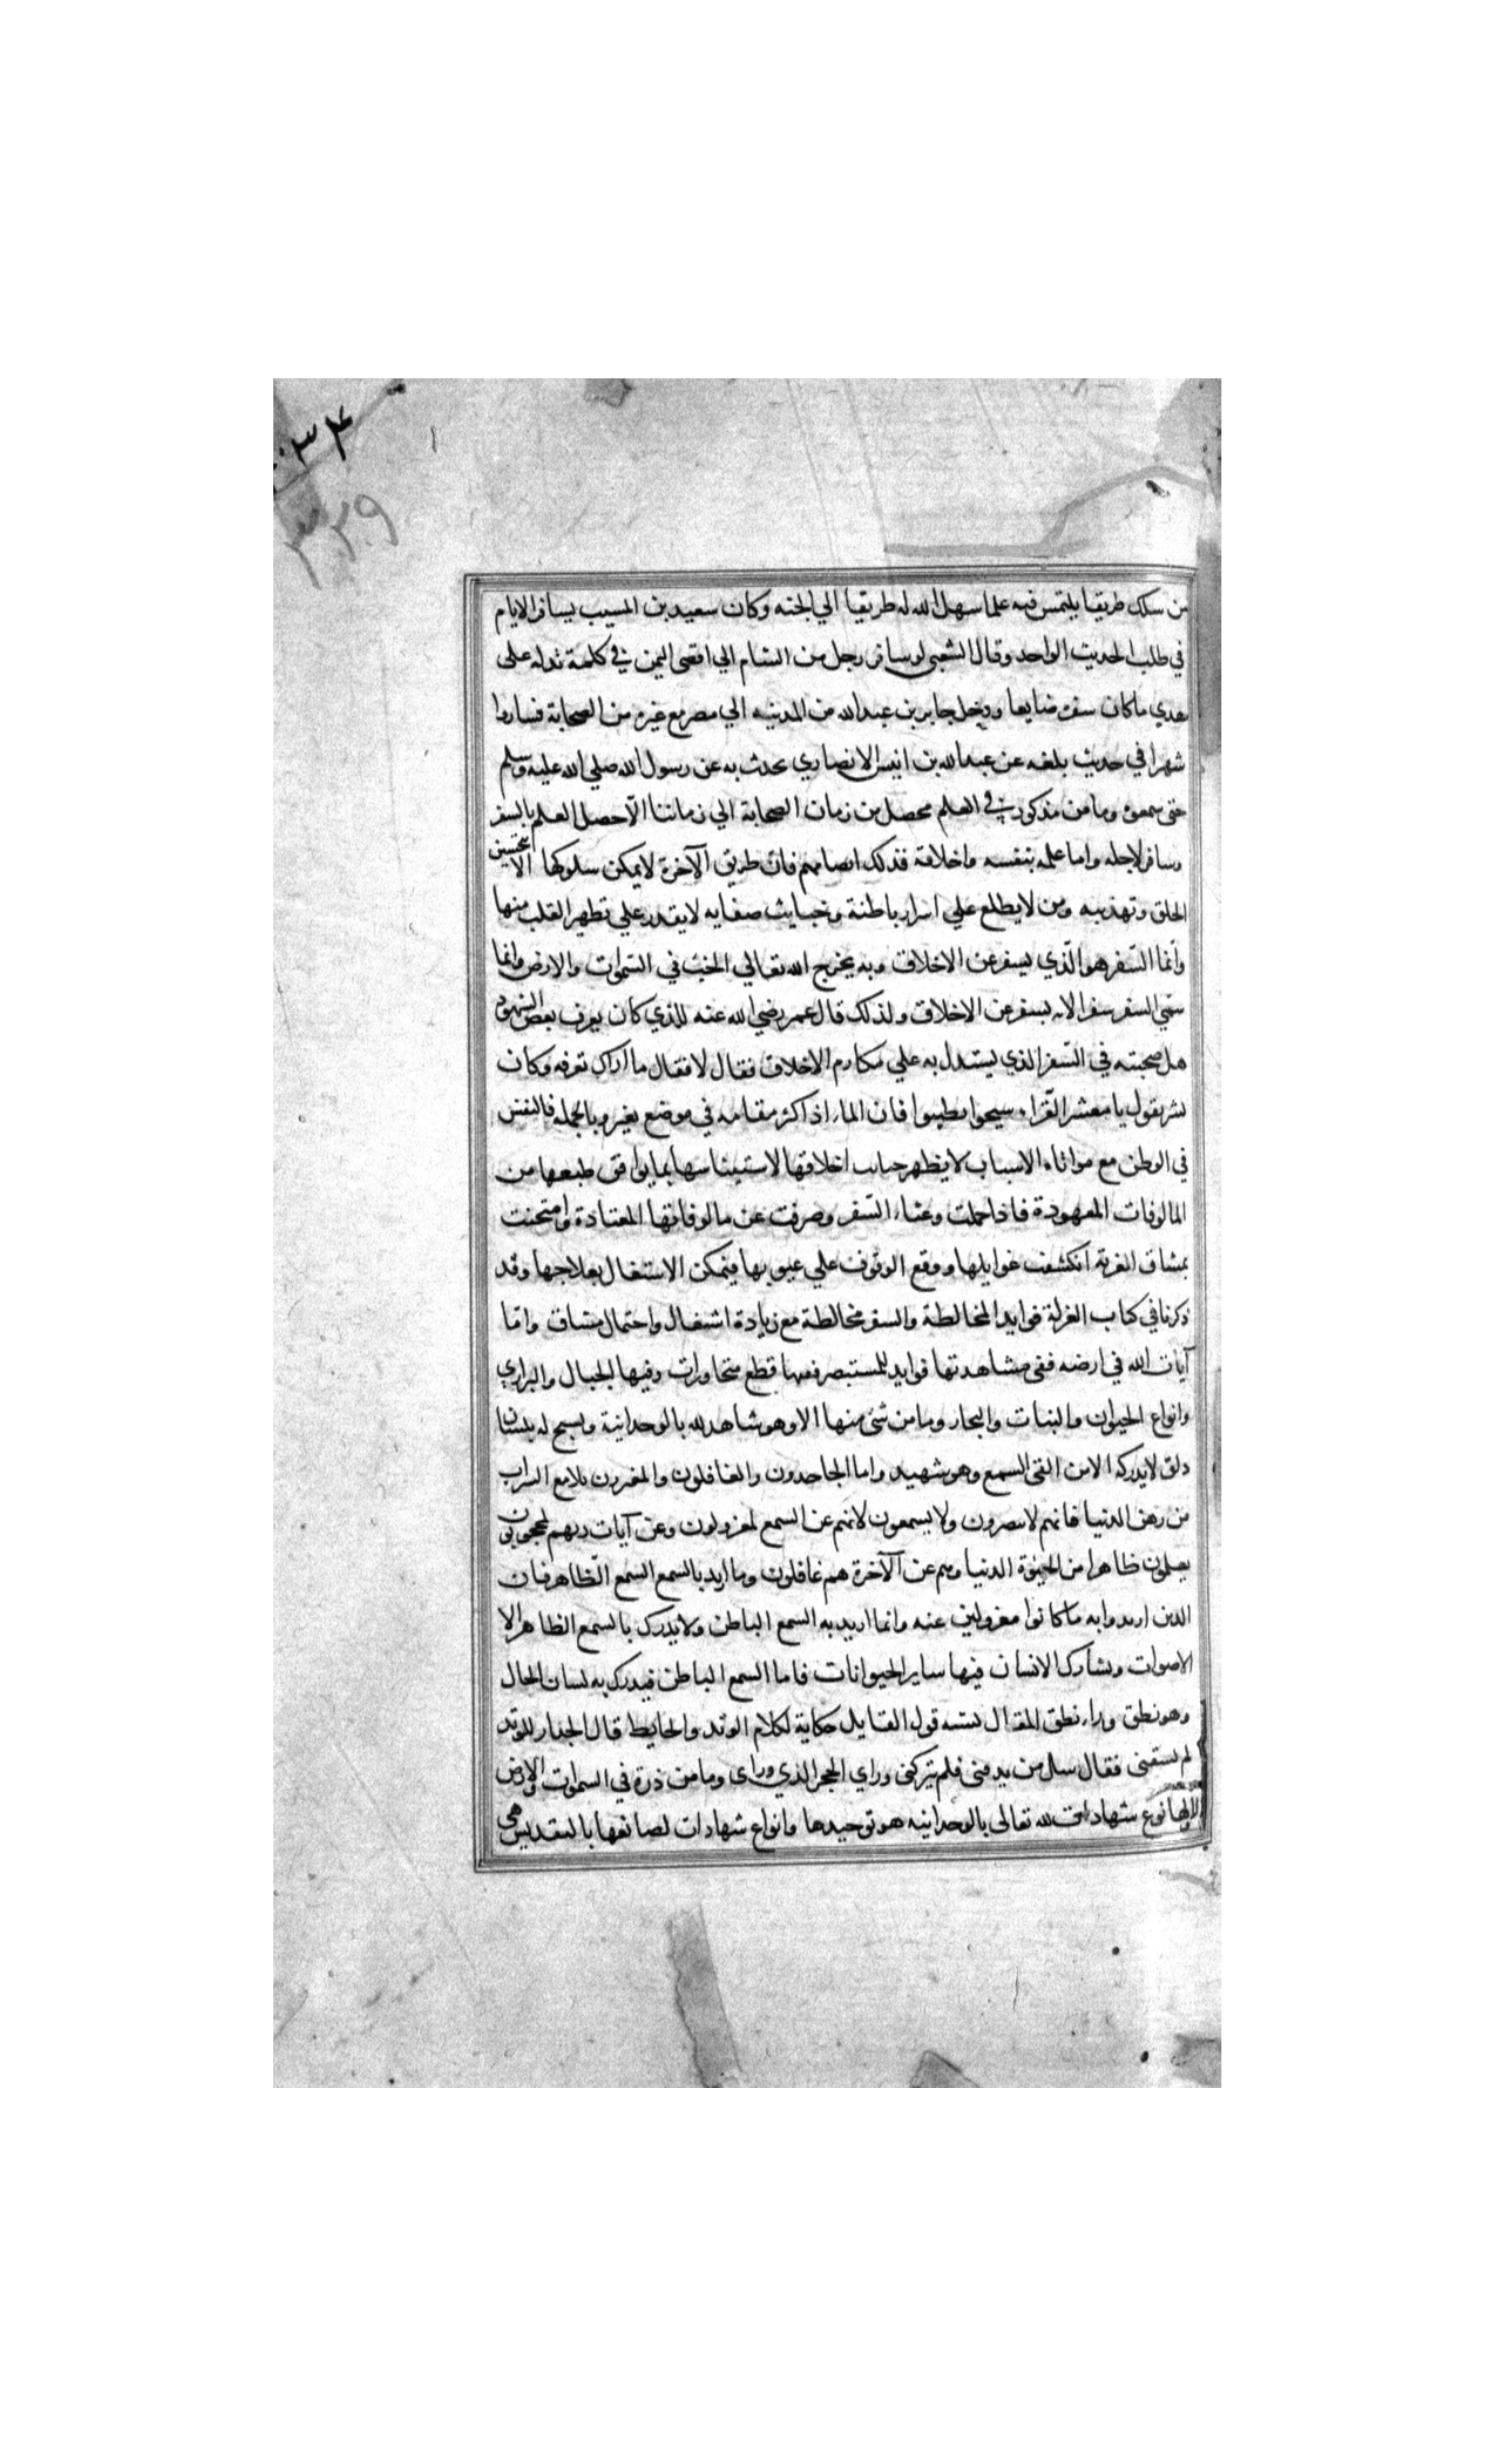 ۳۴
۳۳۹
من سلك طريقا يلتمس فيه علما سهل الله له طريقا الي الجنه وكان سعيد بن المسيب يسافر الايام
في طلب الحديث الواحد وقال الشعبي لو سافر رجل من الشام الي اقصى اليمن في كلمة تدله على
هدي ما كان سفره ضايعا ورحل جابر بن عبدالله من المدينه الي مصر مع غيره من الصحابة فساروا
شهرا في حديث بلغه عن عبدالله بن انيس الانصاري يحدث به عن رسول الله صلي الله عليه وسلم
حتى سمعوه وما من مذكور في العلم محصل من زمان الصحابة الي زماننا الا حصل العلم بالسفر
وسافر لاجله واما علمه بنفسه واخلاقه فذلك ايضا مهم فان طريق الآخرة لا يمكن سلوكها الا بتحسين
الخلق وتهذيبه ومن لا يطلع علي اسرار باطنة وخبايث صفايه لا يقدر علي تطهر القلب منها
وانما السفر هو الذي يسفر عن الاخلاق وبه يخرج الله تعالي الخبث في السموات والارض وانما
سمي السفر سفرا لانه يسفر عن الاخلاق ولذلك قال عمر رضي الله عنه للذي كان يعرف بعض الشهود
هل صحبته في السفر الذي يستدل به علي مكارم الاخلاق فقال لا فقال ما اراك تعرفه وكان
بشر يقول يا معشر القراء سيحوا تطيبوا فان الماء اذا كثر مقامه في موضع يغير وبالجمله فالنفس
في الوطن مع مواتاه الاسباب لا يظهر خبايث اخلاقها لاستيناسها بما يوافق طبعها من
المالوفات المعهودة فاذا حملت وعثاء السفر وصرفت عن مالوفاتها المعتادة وامتحنت
بمشاق الغربة انكشفت غوايلها ووقع الوقوف علي عيوبها فيمكن الاشتغال بعلاجها وقد
ذكرنا في كتاب العزلة فوايد المخالطة والسفر مخالطة مع زيادة اشتغال واحتمال مشاق واما
آيات الله في ارضه ففي مشاهدتها فوايد للمستبصر ففيها قطع متجاورات وفيها الجبال والبراري
وانواع الحيوان والنبات والبحار وما من شئ منها الا وهو شاهد لله بالوحدانية ومسبح له بلسان
ذلق لا يدركه الا من القى السمع وهو شهيد واما الجاحدون والغافلون والمغترون بلامع السراب
من زهرة الدنيا فانهم لا يبصرون ولا يسمعون لانهم عن السمع لمعزولون وعن آيات ربهم لمحجوبون
يعلمون ظاهرا من الحيوة الدنيا وهم عن الآخرة هم غافلون وما اريد بالسمع السمع الظاهر فان
الذين اريدوا به ما كانوا معزولين عنه وانما اريد به السمع الباطن ولا يدرك بالسمع الظاهر الا
الاصوات ويشارك الانسان فيها ساير الحيوانات فاما السمع الباطن فيدرك به لسان الحال
وهو نطق وراء نطق المقال يشبه قول القايل حكاية لكلام الوتد والحايط قال الجدار للوتد
لم تشقني فقال سل من يدقني فلم يتركني وراي الحجر الذي وراي وما من ذرة في السموات والارض
الا ولها نوع شهادات لله تعالي بالوحدانيه هو توحيدها وانواع شهادات لصانعها بالتقديس هي